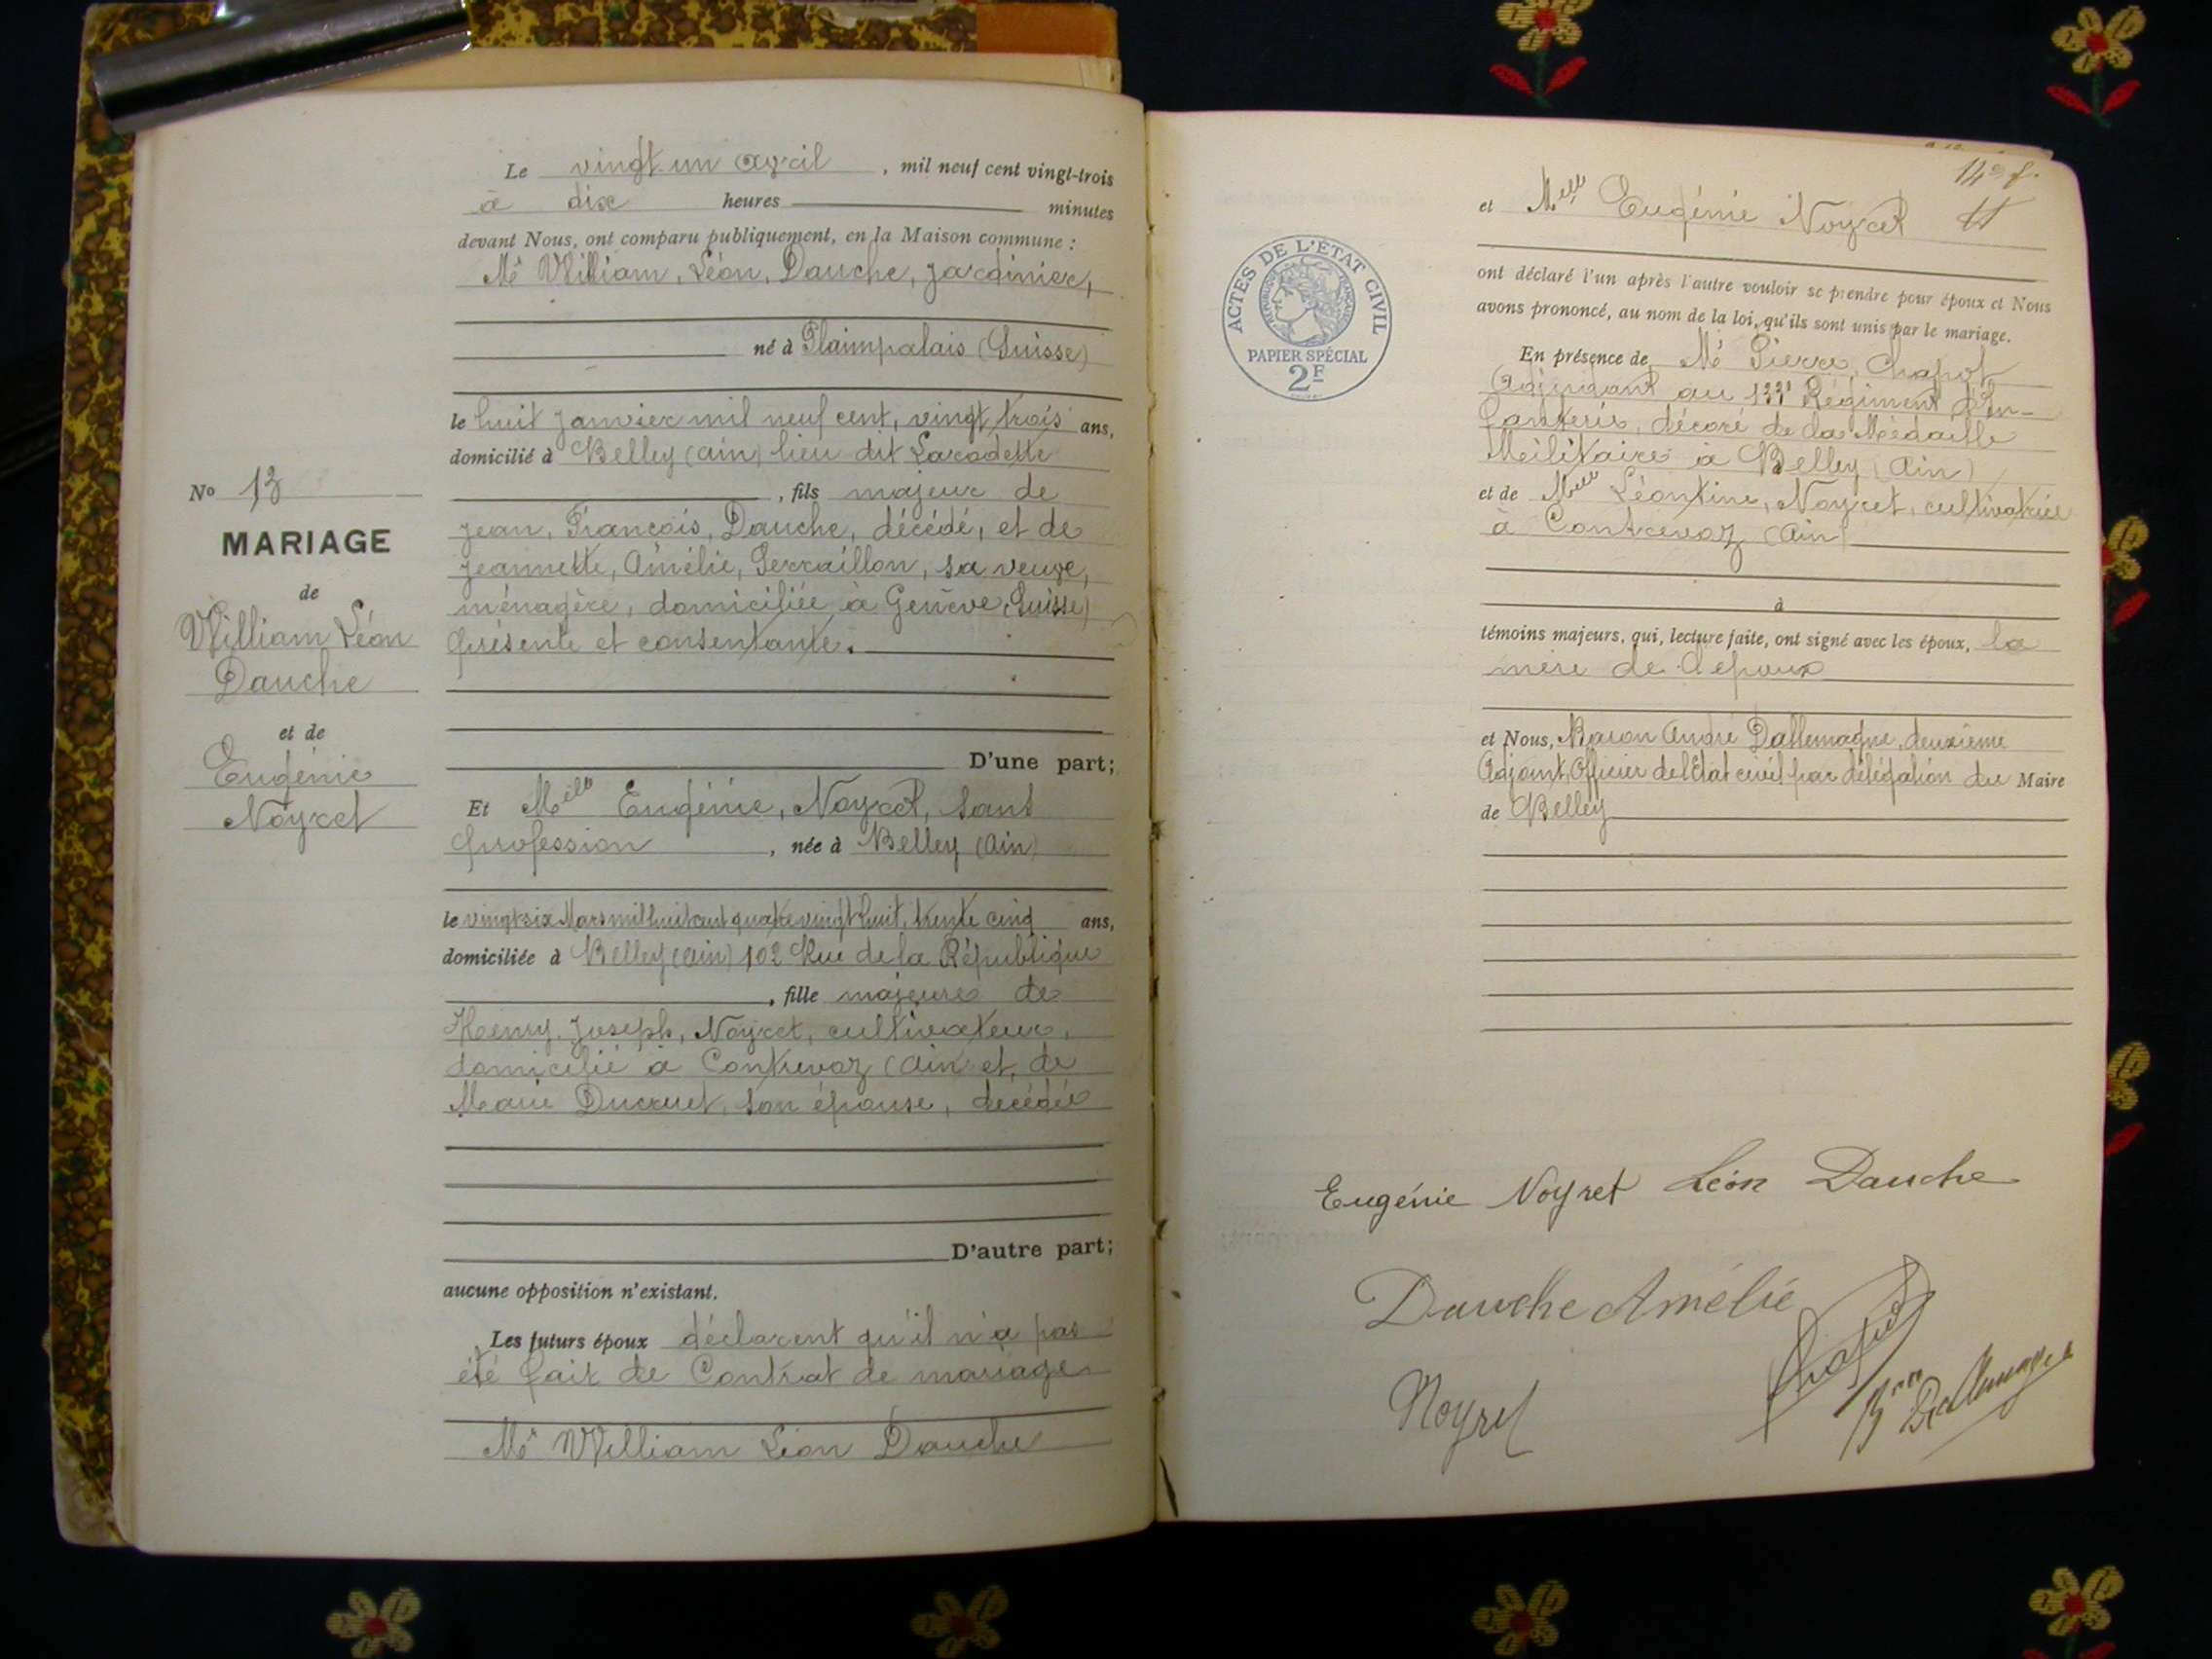 Le vingt-un avril, mil neuf cent vingt-trois
à dix heures minutes
devant Nous, ont comparu publiquement, en la Maison commune :
Mr William, Léon, Dauche, jardinier,
né à Plainpalais (Suisse)
le huit janvier mil neuf cent, vingt trois ans,
domicilié à Belley (Ain) lieu dit
, fils majeur de
Jean, François, Dauche, décédé, et de
Jeannette, Amélie, Serraillon, sa veuve,
ménagère, domiciliée à Genève (Suisse)
présente et consentante.
D'une part;
Et Melle Eugénie, Noyret, sans
profession, née à Belley (Ain)
le vingt six Mars mil huit cent quatre vingt huit, trente cinq ans,
domiciliée à Belley (Ain) 102 Rue de la République
, fille majeure de
Henry, Joseph, Noyret, cultivateur,
domicilié à Contrevoz (Ain et, de
Marie Ducruet, son épouse, décédée
D'autre part;
aucune opposition n'existant.
Les futurs époux déclarent qu'il n'a pas
été fait de Contrat de mariage
Mr William Léon Dauche
No 13
MARIAGE
de
William Léon
Dauche
et de
Eugénie
Noyret
et Melle Eugénie Noyret
ont déclaré l'un après l'autre vouloir se prendre pour époux et Nous
avons prononcé, au nom de la loi, qu'ils sont unis par le mariage.
En présence de Mr Pierre, Chapot
Adjudant au 133e Régiment d'In-
fanterie, décoré de la Médaille
Militaire à Belley (Ain)
et de Melle Léontine, Noyret, cultivatrice
à Contrevoz (Ain)
à
témoins majeurs, qui, lecture faite, ont signé avec les époux, la
mère de l'époux
et Nous, Baron André Dallemagne, deuxième
Adjoint, Officier de l'Etat civil par délégation du Maire
de Belley
ACTES DE L'ÉTAT CIVIL
RÉPUBLIQUE FRANÇAISE
PAPIER SPÉCIAL
2F
Eugénie Noyret Léon Dauche
Dauche Amélie
Chapot
Noyret
Bon Dallemagne